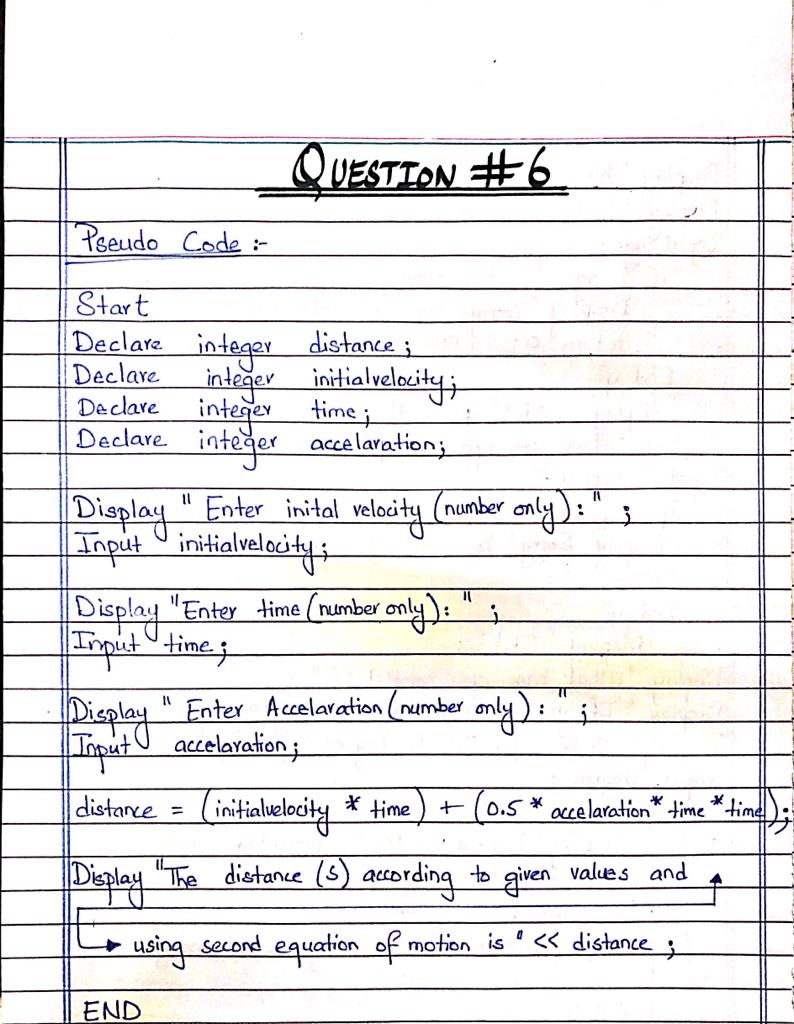 QUESTION #6
Pseudo Code :-
Start
Declare integer distance;
Declare integer initialvelocity;
Declare integer time;
Declare integer accelaration;
Display " Enter inital velocity (number only) : " ;
Input initialvelocity;
Display "Enter time (number only) : " ;
Input time;
Display " Enter Accelaration (number only) : " ;
Input accelaration;
distance = (initialvelocity * time) + (0.5 * accelaration * time * time);
Display "The distance (S) according to given values and
using second equation of motion is " << distance ;
END